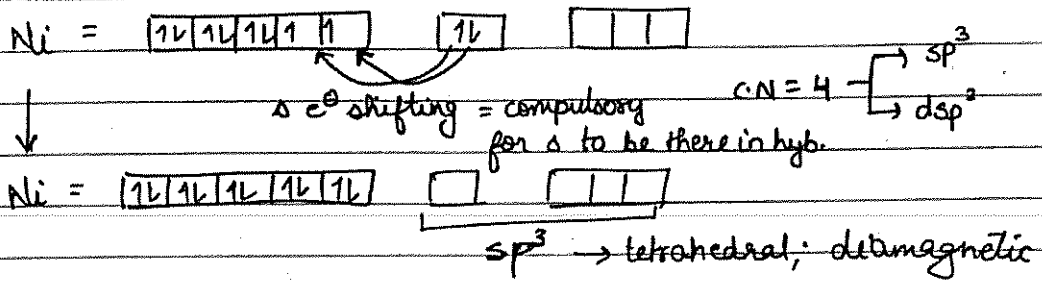 Ni = [1L|1L|1L|1|1] [1L] [ | | ]
s e⊖ shifting = compulsory for s to be there in hyb.
C·N = 4 → sp³
→ dsp²
↓
Ni = [1L|1L|1L|1L|1L] [ ] [ | | ]
sp³ → tetrahedral; diamagnetic